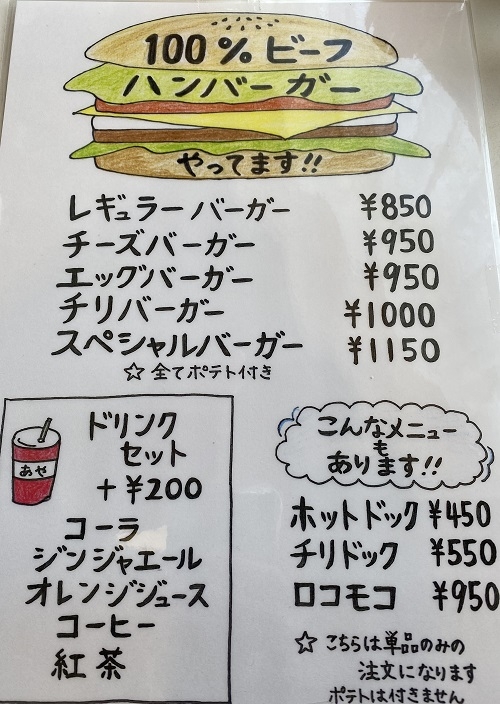 100%ビーフ
ハンバーガー
やってます!!
レギュラーバーガー ¥850
チーズバーガー ¥950
エッグバーガー ¥950
チリバーガー ¥1000
スペシャルバーガー ¥1150
☆全てポテト付き
あや
ドリンク
セット
+¥200
コーラ
ジンジャエール
オレンジジュース
コーヒー
紅茶
こんなメニュー
も
あります!!
ホットドック ¥450
チリドック ¥550
ロコモコ ¥950
☆こちらは単品のみの
注文になります
ポテトは付きません